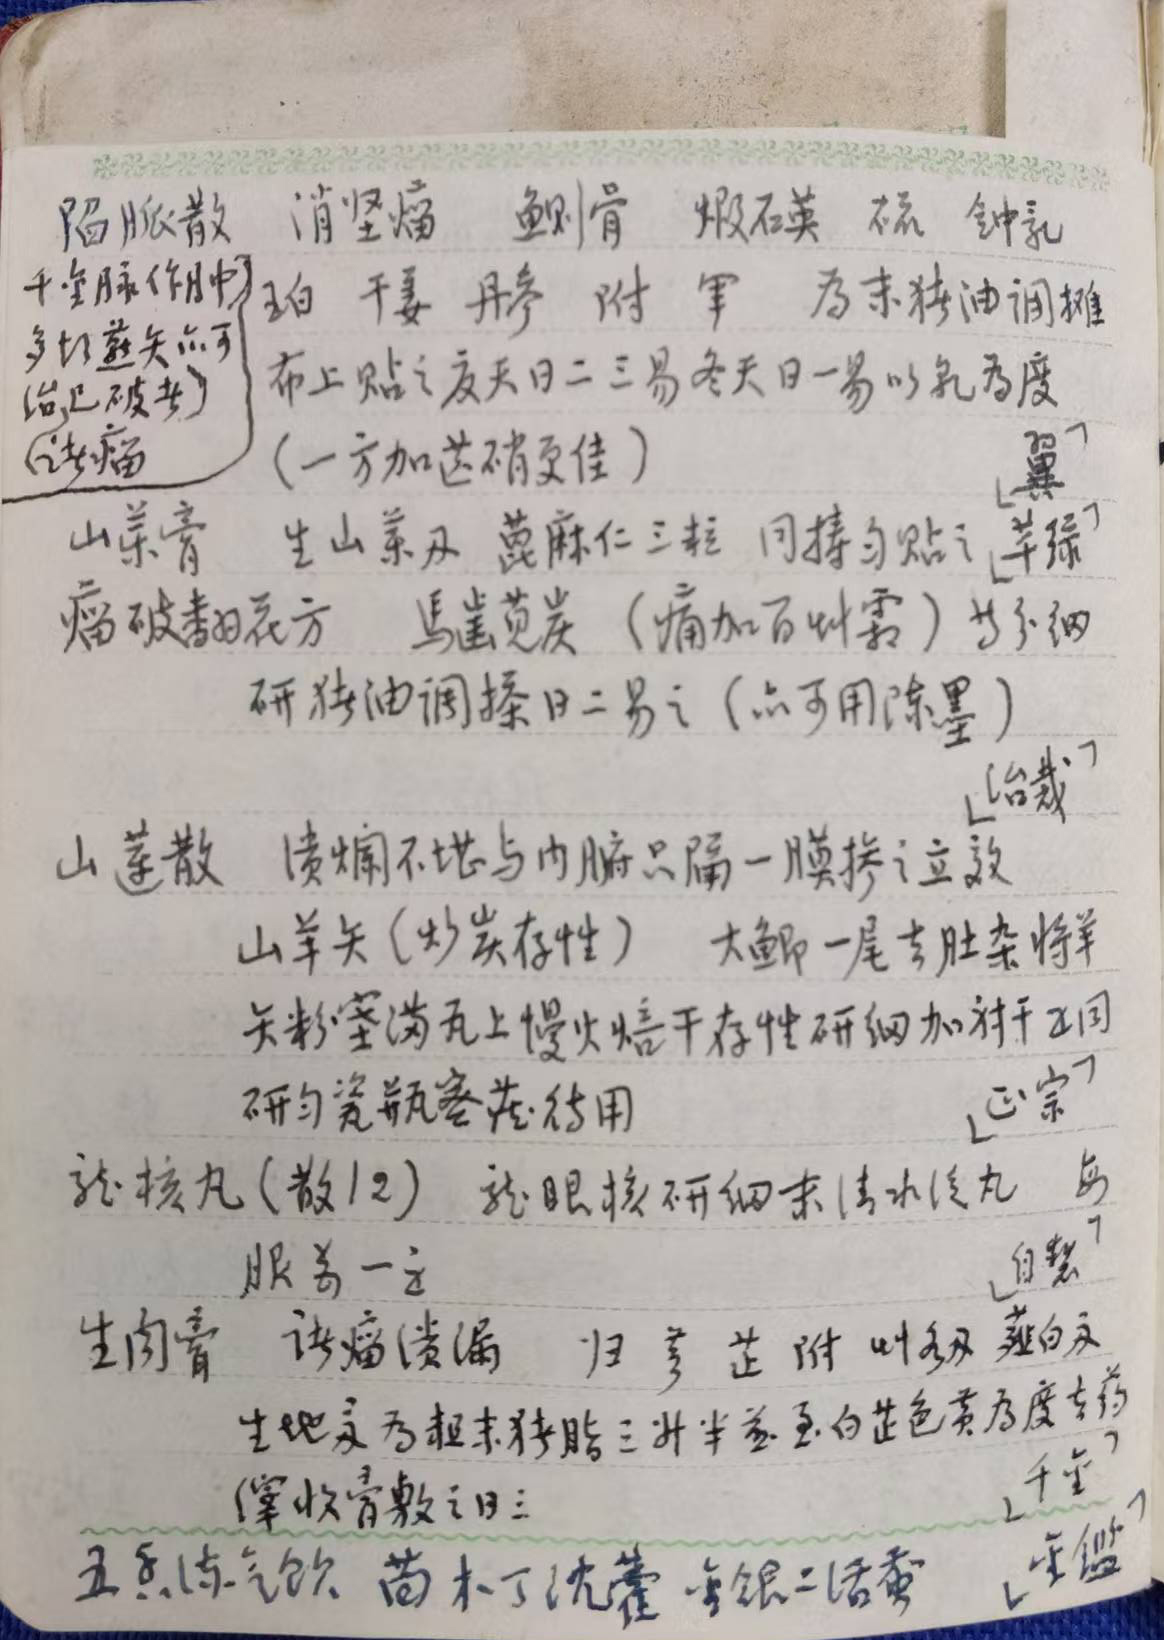 陷脈散 消坚瘤 鲗骨 煅石英 硫 钟乳
千金脉作肿
珀 干姜 丹参 附 军 为末猪油调摊
多切 亦可
布上贴之夏天日二三易冬天日一易以乳为度
治已破者)
(诸瘤
(一方加芒硝更佳) 「翼」
山药膏 生山药 蓖麻仁三粒 同捣匀贴之「萃录」
瘤破翻花方 馬齿苋炭(痛加百艸霜)等分细
研猪油调搽日二易之(亦可用陈墨)
「治裁」
山莲散 溃烂不堪与内腑只隔一膜掺之立效
山羊矢(炒炭存性) 大鲫一尾去肚杂将羊
矢粉塞满瓦上慢火焙干存性研细加射干 同
研匀瓷瓶密藏待用 「正宗」
龙核丸(散12) 龙眼核研细末清水泛丸 每
服 一 「自製」
生肉膏 诸瘤溃漏 归 芎 芷 附 艸各 薤白
生地 为粗末猪脂三升半煎至白芷色黄为度去药
滓收膏敷之日三 「千金」
五香流气饮 茴 木丁沈藿 金银二活蚕 「金鑑」